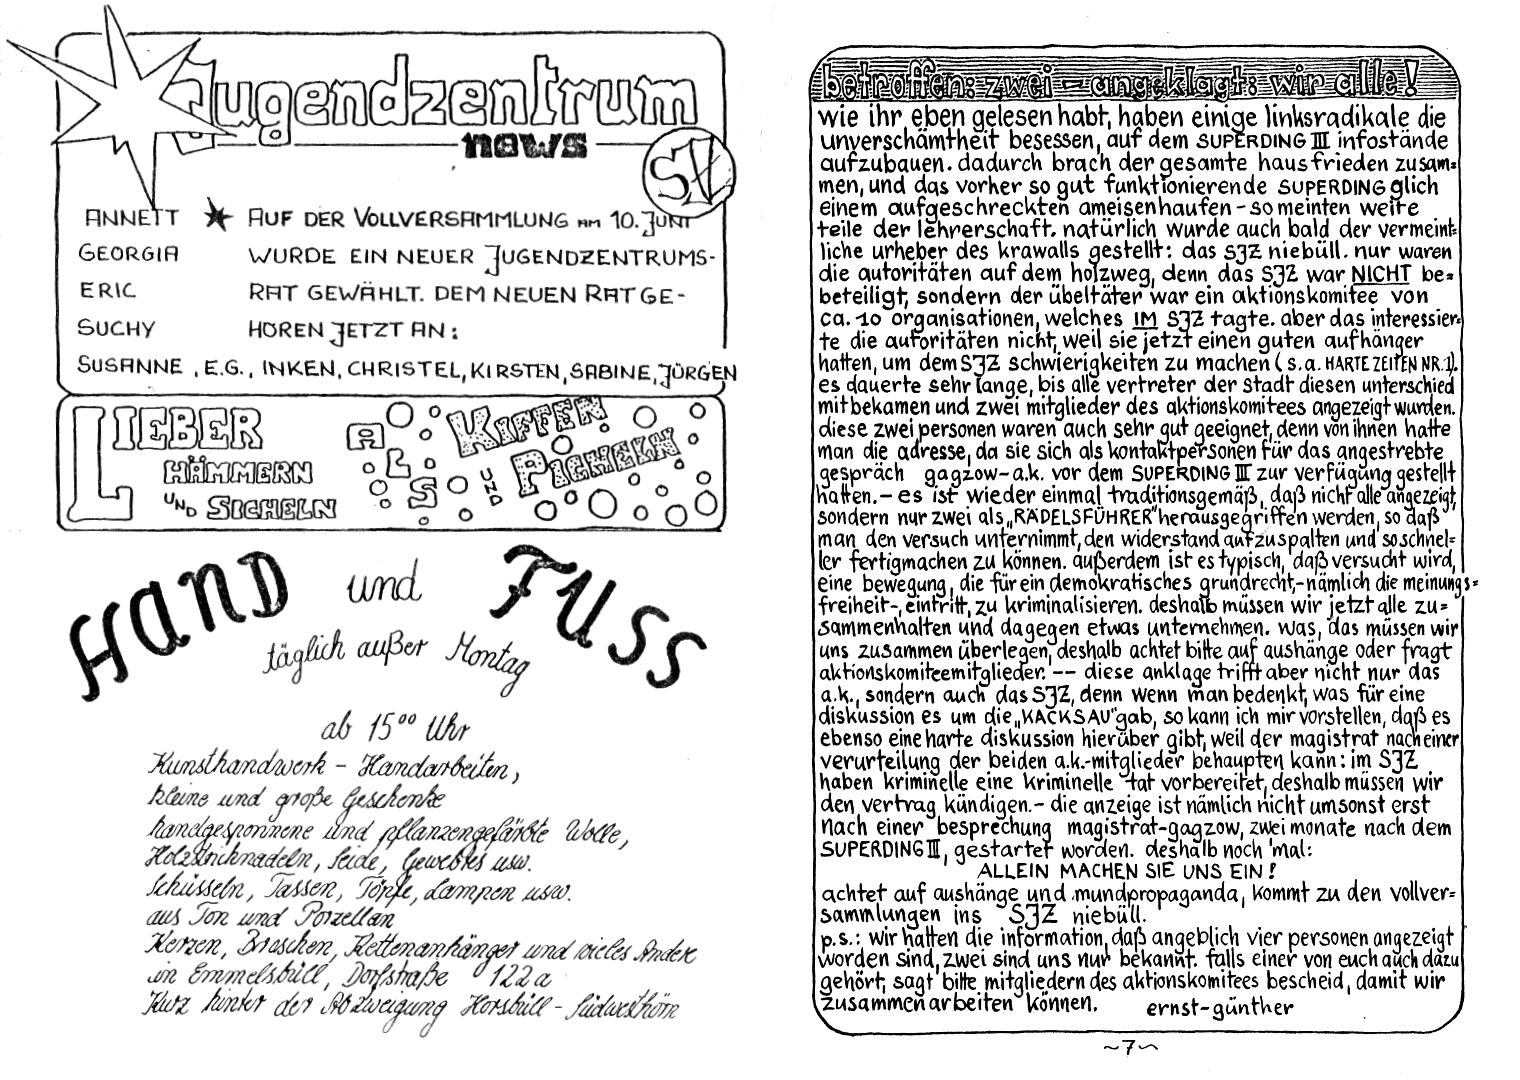 Jugendzentrum
news
SV
ANNETT ★ AUF DER VOLLVERSAMMLUNG AM 10. JUNI
GEORGIA WURDE EIN NEUER JUGENDZENTRUMS-
ERIC RAT GEWÄHLT. DEM NEUEN RAT GE-
SUCHY HÖREN JETZT AN:
SUSANNE, E.G., INKEN, CHRISTEL, KIRSTEN, SABINE, JÜRGEN
LIEBER HÄMMERN UND SICHELN
ALS KIFFEN UND PICHELN
HAND und FUSS
täglich außer Montag
ab 15⁰⁰ Uhr
Kunsthandwerk - Handarbeiten,
kleine und große Geschenke
handgesponnene und pflanzengefärbte Wolle,
Holzstricknadeln, Seide, Gewebtes usw.
Schüsseln, Tassen, Töpfe, Lampen usw.
aus Ton und Porzellan
Kerzen, Broschen, Kettenanhänger und vieles Andere
in Emmelsbüll, Dorfstraße 122a
Kurz hinter der Abzweigung Horsbüll - Südwesthörn
betroffen: zwei – angeklagt: wir alle!
wie ihr eben gelesen habt, haben einige linksradikale die
unverschämtheit besessen, auf dem SUPERDING III infostände
aufzubauen. dadurch brach der gesamte hausfrieden zusam=
men, und das vorher so gut funktionierende SUPERDING glich
einem aufgeschreckten ameisenhaufen - so meinten weite
teile der lehrerschaft. natürlich wurde auch bald der vermeint=
liche urheber des krawalls gestellt: das SJZ niebüll. nur waren
die autoritäten auf dem holzweg, denn das SJZ war NICHT be=
beteiligt, sondern der übeltäter war ein aktionskomitee von
ca. 10 organisationen, welches IM SJZ tagte. aber das interessier=
te die autoritäten nicht, weil sie jetzt einen guten aufhänger
hatten, um dem SJZ schwierigkeiten zu machen (s.a. HARTE ZEITEN NR.1).
es dauerte sehr lange, bis alle vertreter der stadt diesen unterschied
mitbekamen und zwei mitglieder des aktionskomitees angezeigt wurden.
diese zwei personen waren auch sehr gut geeignet, denn von ihnen hatte
man die adresse, da sie sich als kontaktpersonen für das angestrebte
gespräch gagzow-a.k. vor dem SUPERDING III zur verfügung gestellt
hatten.- es ist wieder einmal traditionsgemäß, daß nicht alle angezeigt,
sondern nur zwei als „RÄDELSFÜHRER" herausgegriffen werden, so daß
man den versuch unternimmt, den widerstand aufzuspalten und so schnel=
ler fertigmachen zu können. außerdem ist es typisch, daß versucht wird,
eine bewegung, die für ein demokratisches grundrecht,-nämlich die meinungs=
freiheit-, eintritt, zu kriminalisieren. deshalb müssen wir jetzt alle zu=
sammenhalten und dagegen etwas unternehmen. was, das müssen wir
uns zusammen überlegen, deshalb achtet bitte auf aushänge oder fragt
aktionskomiteemitglieder. -- diese anklage trifft aber nicht nur das
a.k., sondern auch das SJZ, denn wenn man bedenkt, was für eine
diskussion es um die „KACKSAU" gab, so kann ich mir vorstellen, daß es
ebenso eine harte diskussion hierüber gibt, weil der magistrat nach einer
verurteilung der beiden a.k.-mitglieder behaupten kann: im SJZ
haben kriminelle eine kriminelle tat vorbereitet, deshalb müssen wir
den vertrag kündigen.- die anzeige ist nämlich nicht umsonst erst
nach einer besprechung magistrat-gagzow, zwei monate nach dem
SUPERDING III, gestartet worden. deshalb noch 'mal:
ALLEIN MACHEN SIE UNS EIN!
achtet auf aushänge und mundpropaganda, kommt zu den vollver=
sammlungen ins SJZ niebüll.
p.s.: wir hatten die information, daß angeblich vier personen angezeigt
worden sind, zwei sind uns nur bekannt. falls einer von euch auch dazu
gehört, sagt bitte mitgliedern des aktionskomitees bescheid, damit wir
zusammenarbeiten können. ernst-günther
~7~